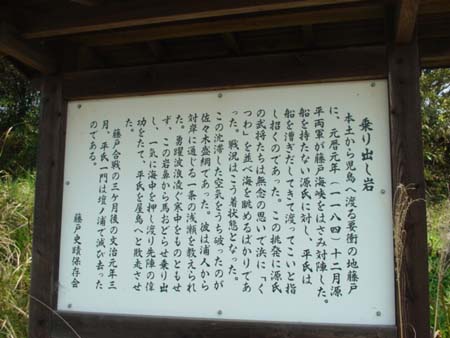 乗り出し岩
本土から児島へ渡る要衝の地藤戸
に、元暦元年（一一八四）十二月源
平両軍が藤戸海峡をはさみ対陣した。
船を持たない源氏に対し、平氏は、
船を漕ぎだしてきて渡ってこいと指
し招くのであった。この挑発に源氏
の武将たちは無念の思いで浜に「く
つわ」を並べ海を眺めるばかりであ
った。戦況はこう着状態となった。
この沈滞した空気をうち破ったのが
佐々木盛綱であった。彼は浦人から
対岸に通じる一条の浅瀬を教えられ
た。勇躍波浪凌ぐ寒中をものともせ
ず、この岩鼻から馬おどらせ乗り出
し、一気に海中を押し渡り先陣の偉
功をたて、平氏を屋島へと敗走させ
た。
藤戸合戦の三ヶ月後の文治元年三
月、平氏一門は壇ノ浦で滅び去った
のである。
藤戸史蹟保存会